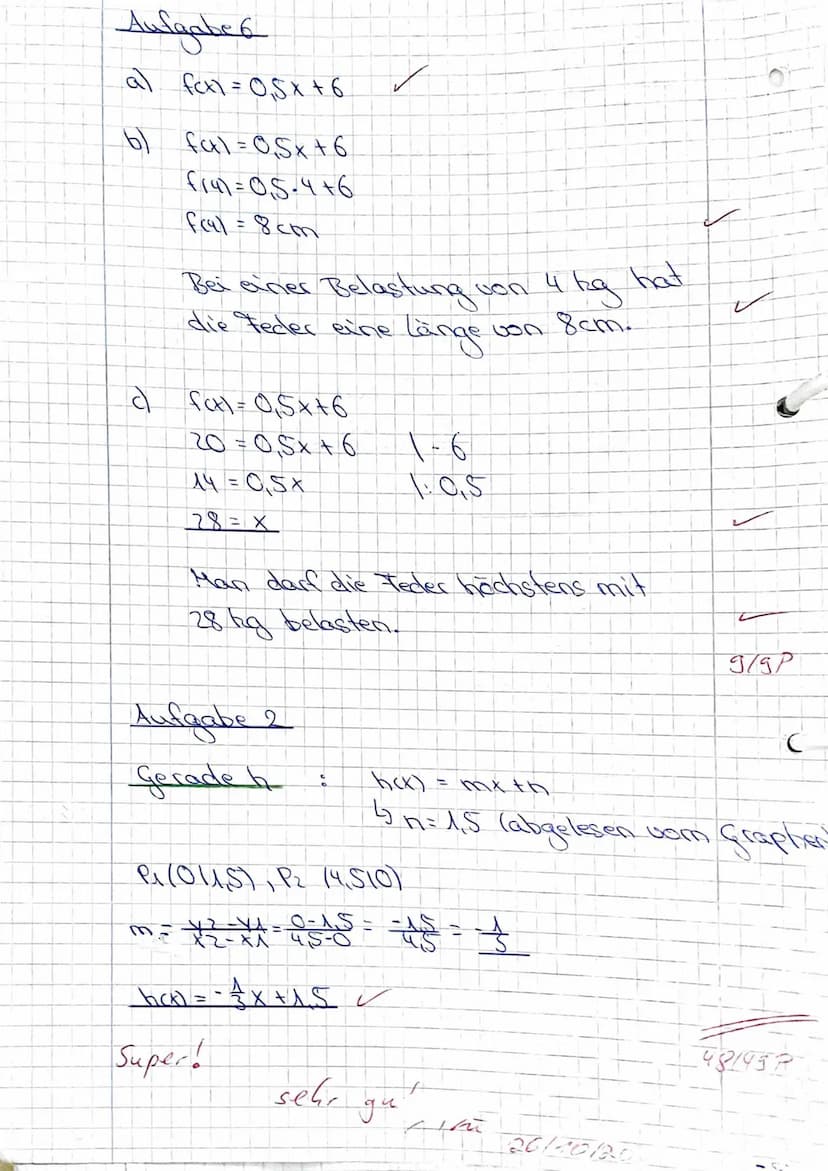 Aufgabe 6
a) f(x) = 0,5x + 6
b) f(x) = 0,5x + 6
f(4) = 0,5 · 4 + 6
f(4) = 8 cm
Bei einer Belastung von 4 kg hat
die Feder eine Länge von 8cm.
c) f(x) = 0,5x + 6
20 = 0,5x + 6 | - 6
14 = 0,5x | : 0,5
28 = x
Man darf die Feder höchstens mit
28 kg belasten.
9/9P
Aufgabe 2
Gerade h : h(x) = mx + n
↳ n = 1,5 (abgelesen vom Graphen)
P1 (0|1,5), P2 (4,5|0)
m = y2-y1/x2-x1 = 0-1,5/4,5-0 = -1,5/4,5 = -1/3
h(x) = -1/3 x + 1,5
Super!
sehr gut